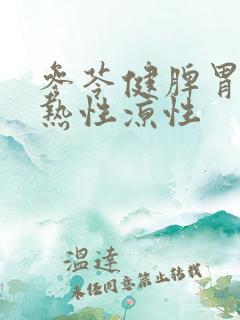 参苓健脾胃
热性凉性
温達
未经同意禁止转载